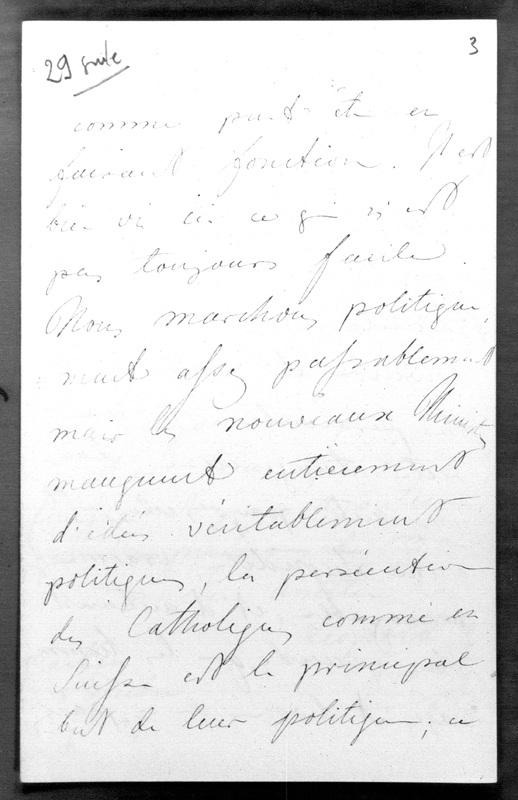 29 suite
3
comme peut être en
faisant fonction. Il est
bien vu ici ce qui n'est
pas toujours facile.
Nous marchons politique,
ment assez passablement
mais les nouveaux Ministres
manquent entièrement
d'idées véritablement
politiques, la persécution
des Catholiques comme en
Suisse est le principal
but de leur politique; ce